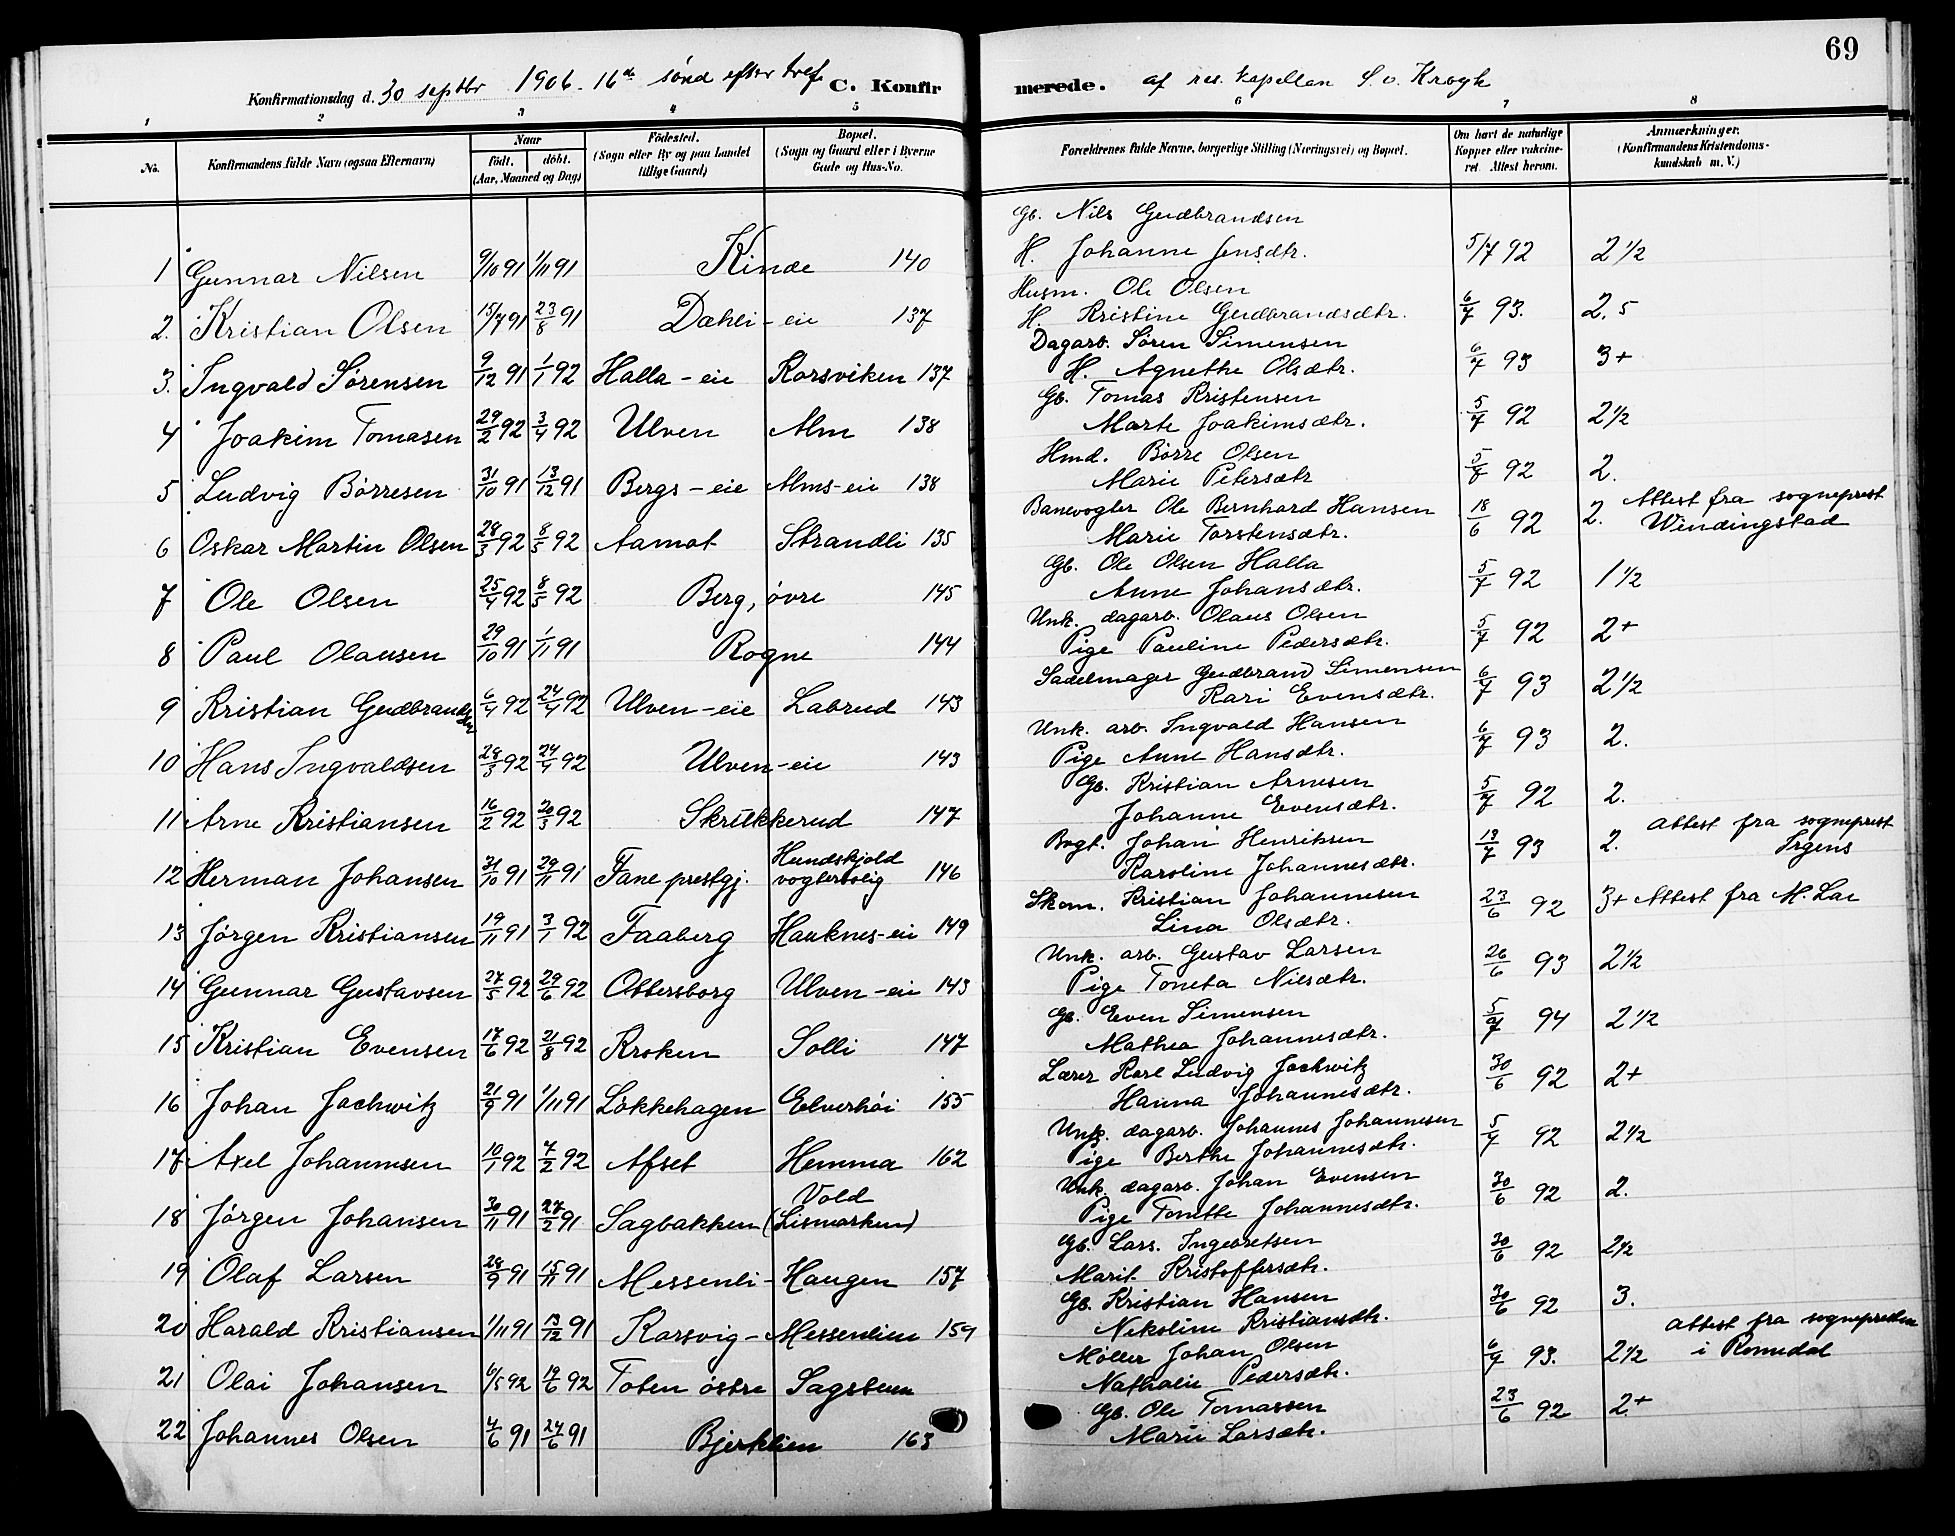 69
Konfirmationsdag d. 30 septbr 1906. 16de sønd efter tref. C. Konfir
merede. af res. kapellan S. v. Krogh
1 2 3 4 5 6 7 8
No. Konfirmandens fulde Navn (ogsaa Efternavn) Naar födt. döbt. (Aar, Maaned og Dag) Födested. (Sogn eller By og paa Landet tillige Gaard) Bopæl. (Sogn og Gaard eller i Byerne Gade og Hus-No.
Forældrenes fulde Navne, borgerlige Stilling (Næringsvei) og Bopæl. Om havt de naturlige Kopper eller vakcineret. Attest herom. Anmærkninger. (Konfirmandens Kristendomskundskab m. V.)
Gb. Nils Gudbrandsen
1 Gunnar Nilsen 9/10 91 1/11 91 Kinde 140 H. Johanne Jensdtr. 5/7 92 2 1/2
Husm. Ole Olsen
2. Kristian Olsen 15/7 91 23/8 91 Dæhli-eie 137 H. Kristine Gudbrandsdtr. 6/7 93. 2,5
Dagarb. Søren Simensen
3. Ingvald Sørensen 9/12 91 1/1 92 Halla-eie Korsviken 137 H. Agnethe Olsdtr. 6/7 93 3+
Gb. Tomas Kristensen
4 Joakim Tomasen 29/2 92 3/4 92 Ulven Alm 138 Marte Joakimsdtr. 5/7 92 2 1/2
Hmd. Børre Olsen
5 Ludvig Børresen 31/10 91 13/12 91 Bergs-eie Alms-eie 138 Marie Petersdtr 5/7 92 2.
Banevogter Ole Bernhard Hansen
6 Oskar Martin Olsen 28/3 92 8/5 92 Aamot Strandli 135 Marie Torstensdtr. 18/6 92 2. Attest fra sogneprest Windingstad
Gb. Ole Olsen Halla
7 Ole Olsen 25/4 92 8/5 92 Berg, øvre 145 Anne Johansdtr. 5/7 92 1 1/2
Unk. dagarb. Olaus Olsen
8 Paul Olausen 29/10 91 1/11 91 Rogne 144 Pige Pauline Pedersdtr. 5/7 92 2+
Sadelmager Gudbrand Simensen
9 Kristian Gudbrandsen 6/4 92 24/4 92 Ulven-eie Labrud 143 Kari Evensdtr. 6/7 93 2 1/2
Unk. arb. Ingvald Hansen
10 Hans Ingvaldsen 28/3 92 24/4 92 Ulven-eie 143 Pige Anne Hansdtr. 6/7 93 2.
Gb. Kristian Arnesen
11 Arne Kristiansen 16/2 92 20/3 92 Skrukkerud 147 Johanne Evensdtr. 5/7 92 2.
Bvgt. Johan Henriksen
12 Herman Johansen 31/10 91 29/11 91 Fane prestgj. Hundskjold vogterbolig 146 Karoline Johannesdtr. 13/7 93 2. attest fra sogneprest Irgens
Skom. Kristian Johannesen
13 Jørgen Kristiansen 19/11 91 3/1 92 Faaberg Hauknes-eie 149 Lina Olsdtr. 23/6 92 3+ Attest fra M. Lae
Unk. arb. Gustav Larsen
14 Gunnar Gustavsen 27/5 92 29/6 92 Ottersborg Ulven-eie 143 Pige Toneta Nilsdtr. 26/6 93 2 1/2
Gb. Even Simensen
15 Kristian Evensen 17/6 92 21/8 92 Kroken Solli 147 Mathea Johannesdtr. 5/7 94 2 1/2
Lærer Karl Ludvig Jochwitz
16 Johan Jochwitz 21/9 91 1/11 91 Løkkehagen Elverhøi 155 Hanna Johannesdtr. 30/6 92 2+
Unk. dagarb. Johannes Johannesen
17 Axel Johannesen 10/1 92 7/2 92 Afset Hemma 162 Pige Berthe Johannesdtr. 5/7 92 2 1/2
Unk. dagarb. Johan Evensen
18 Jørgen Johansen 30/11 91 27/2 91 Sagbakken Vold (Lismarken) Pige Tonette Johannesdtr. 30/6 92 2.
Gb. Lars. Ingebretsen
19 Olaf Larsen 28/9 91 15/11 91 Messenli-Haugen 157 Marit Kristoffersdtr. 30/6 92 2 1/2
Gb. Kristian Hansen
20 Harald Kristiansen 1/11 91 13/12 91 Korsvig-Messenlien 159 Nikoline Kristiansdtr. 30/6 92 3.
Møller Johan Olsen
21 Olai Johansen 4/5 92 19/6 92 Toten østre Sagstuen Nathalie Pedersdtr. 6/7 93. 2 1/2 attest fra sognepresten i Romedal
Gb. Ole Tomassen
22 Johannes Olsen 4/6 91 24/6 91 Bjerklien 163 Marie Larsdtr. 23/6 92 2+